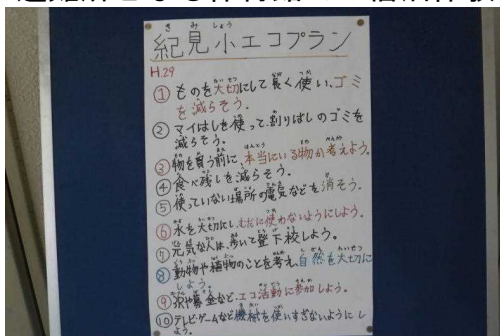 紀見小エコプラン
H.29
① ものを大切にして長く使い、ゴミ
を減らそう。
② マイはしを使って、割りばしのゴミを
減らそう。
③ 物を買う前に、本当にいる物か考えよう。
④ 食べ残しを減らそう。
⑤ 使っていない場所の電気などを消そう。
⑥ 水を大切にし、むだに使わないようにしよう。
⑦ 元気な人は、歩いて登下校しよう。
⑧ 動物や植物のことを考え、自然を大切に
しよう。
⑨ 募金など、エコ活動に参加しよう。
⑩ テレビ・ゲームなど機械を使いすぎないようにし
よう。